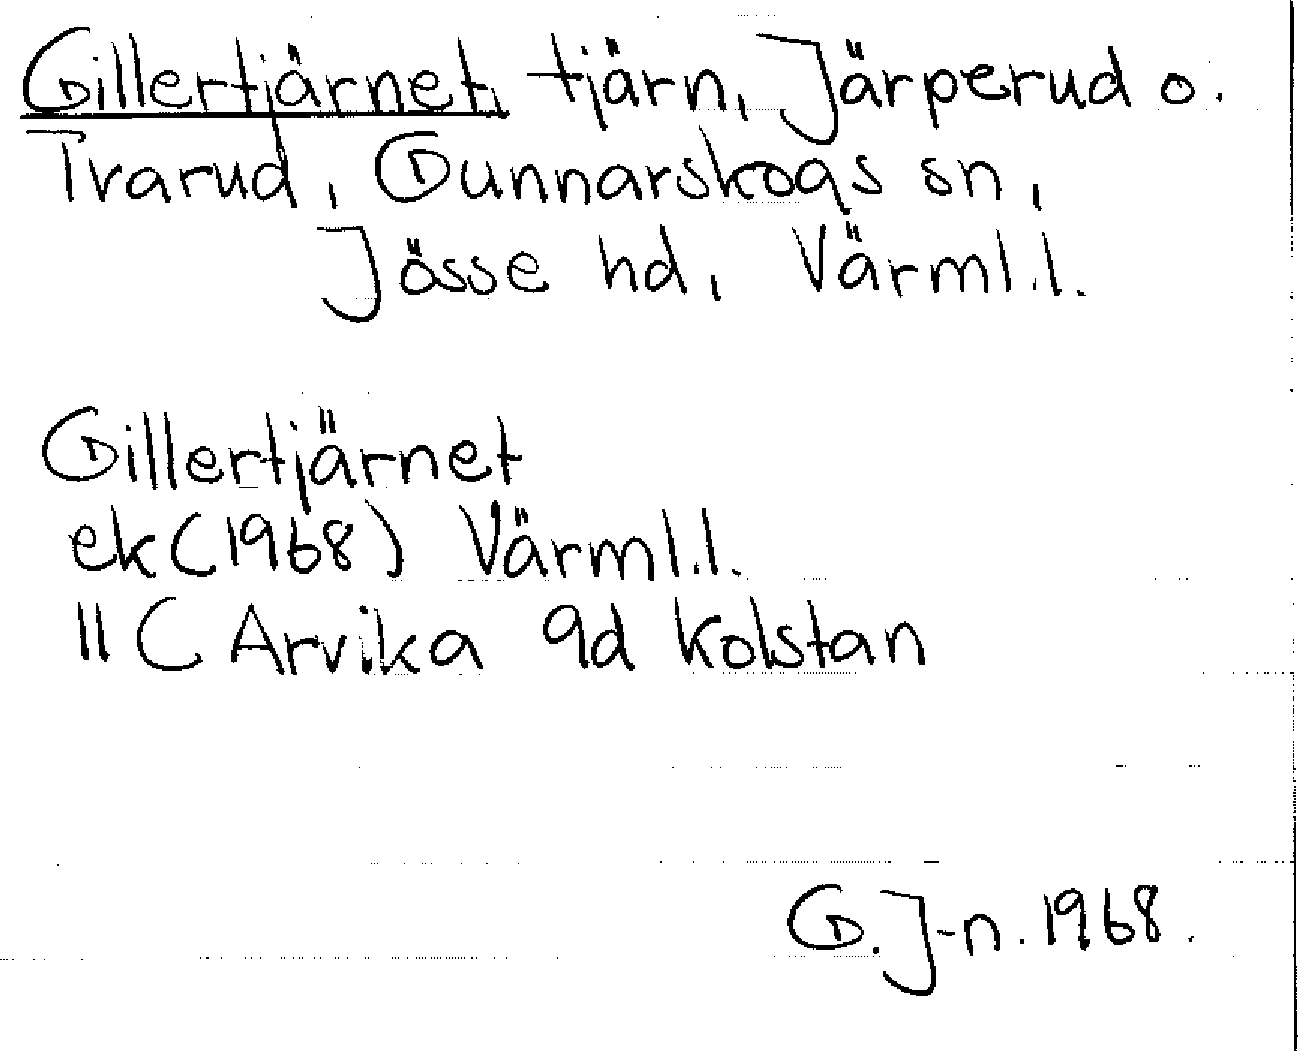 Gillertjärnet, tjärn, Järperud o.
Tvarud, Gunnarskogs sn,
Jösse hd, Värml.l.
Gillertjärnet
ek(1968) Värml.l.
11C Arvika 9d Kolstan
G.J-n. 1968.